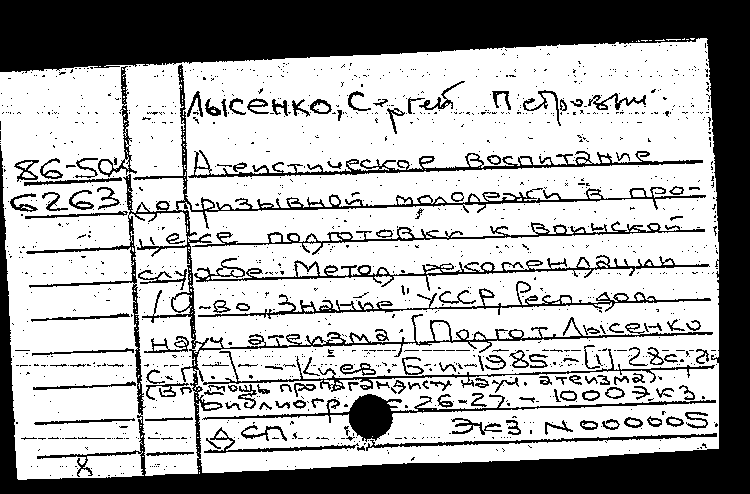 Лысенко, Сергей Петрович.
86-50к Атеистическое воспитание
6263 допризывной молодежи в про-
цессе подготовки к воинской
службе: Метод. рекомендации
/ О-во "Знание" УССР, Респ. дом
науч. атеизма; [Подгот. Лысенко
С.П.]. - Киев: Б.и., 1985. - [1], 28с.;
(В помощь пропагандисту науч. атеизма).
Библиогр.: с. 26-27. - 1000 экз.
ДСП. Экз. N 000005.